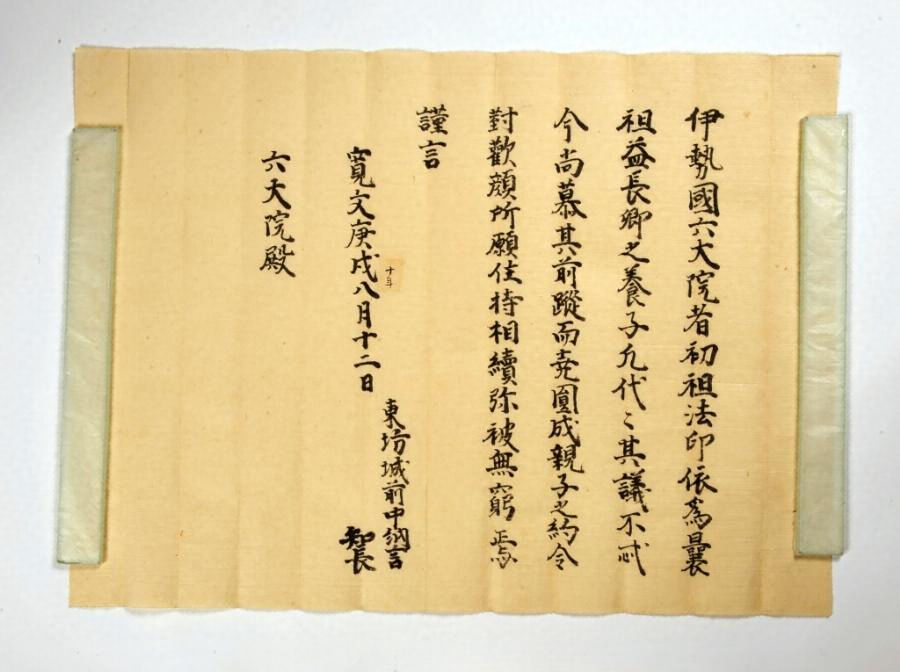 伊勢國六大院者初祖法印依爲曩
祖益長卿之養子九代々其議不忒
今尚慕其前蹤而堯圓成親子之約令
對歡顔所願住持相續弥被無窮焉
謹言
寛文庚戌八月十二日
十年
東坊城前中納言
知長
六大院殿